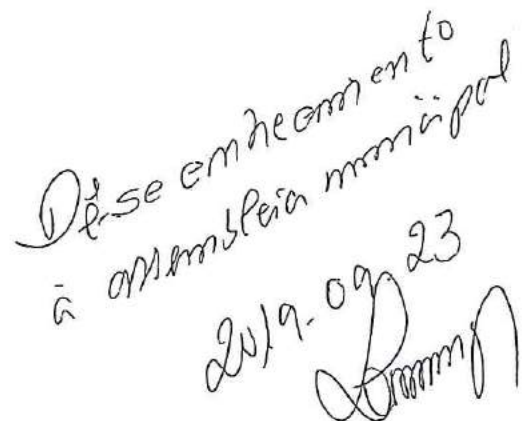 Dê-se conhecimento
à assembleia municipal
2019.09.23